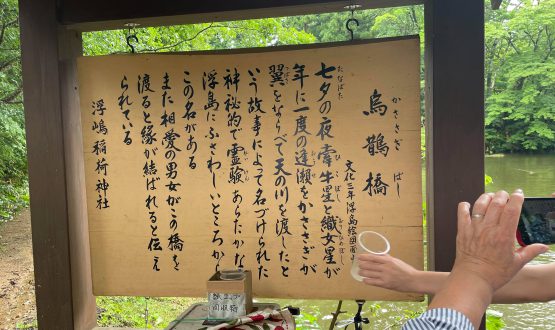 烏鵲橋
かささぎ ばし
文化三年浮島絵図面
七夕の夜牽牛星と織女星が
たなばた ひこぼし おりひめぼし
年に一度の逢瀬をかささぎが
おうせ
翼をならべて天の川を渡したと
つばさ
いう故事によって名づけられた
神秘的で霊験あらたかな
浮島にふさわしいところから
この名がある
また相愛の男女がこの橋を
渡ると縁が結ばれると伝え
られている
浮嶋稲荷神社
回収箱